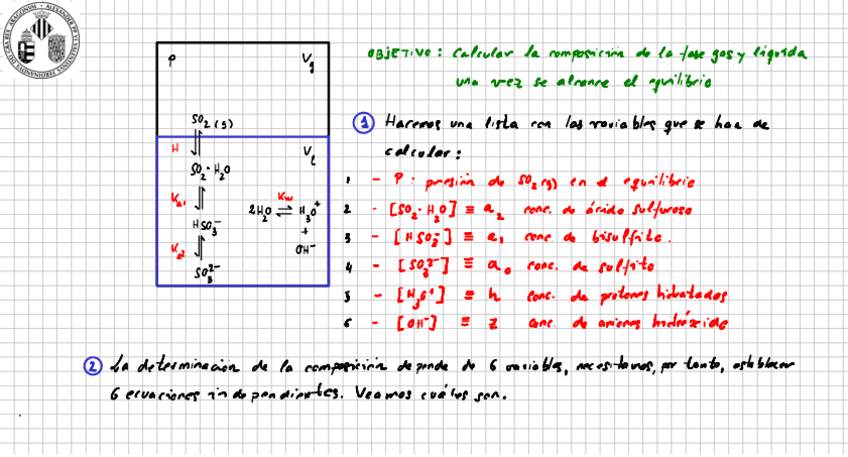 P
V_g
SO₂(g)
H
V_l
SO₂·H₂O
K_a1
K_w
2H₂O ⇌ H₃O⁺
+
OH⁻
HSO₃⁻
K_a2
SO₃²⁻
OBJETIVO: Calcular la composición de la fase gas y líquida
una vez se alcance el equilibrio
① Hacemos una lista con las variables que se han de
calcular:
1 - P: presión de SO₂(g) en el equilibrio
2 - [SO₂·H₂O] ≡ a₂ conc. de ácido sulfuroso
3 - [HSO₃⁻] ≡ a₁ conc. de bisulfito.
4 - [SO₃²⁻] ≡ a₀ conc. de sulfito
5 - [H₃O⁺] ≡ h conc. de protones hidratados
6 - [OH⁻] ≡ z conc. de aniones hidróxido
② La determinación de la composición depende de 6 variables, necesitamos, por tanto, establecer
6 ecuaciones independientes. Veamos cuáles son.